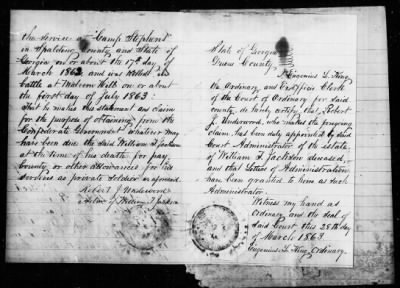 the service at "Camp Stephens"
in Spalding County and State of
Georgia on or about the 17th day of
March 1862 and was killed in
battle at Malvern Hill on or about
the first day of July 1862.
That he makes this statement and claim
for the purpose of obtaining from the
Confederate Government whatever may
have been due the said William T. Jackson
at the time of his death for pay
bounty or other allowances for his
services as private soldier as aforesaid.
Robert J. Underwood
Admr of William T. Jackson
State of Georgia
County
I Eugenius L. King
the Ordinary and Ex Officio Clerk
of the Court of Ordinary for said
county, do hereby certify, that Robert
J. Underwood, who makes the foregoing
claim, has been duly appointed by said
Court Administrator of the estate
of William T. Jackson deceased,
and that Letters of Administration
have been granted to him as such
Administrator.
Witness my hand as
Ordinary and the seal of
said Court this 28th day
of March 1863.
Eugenius L. King Ordinary.